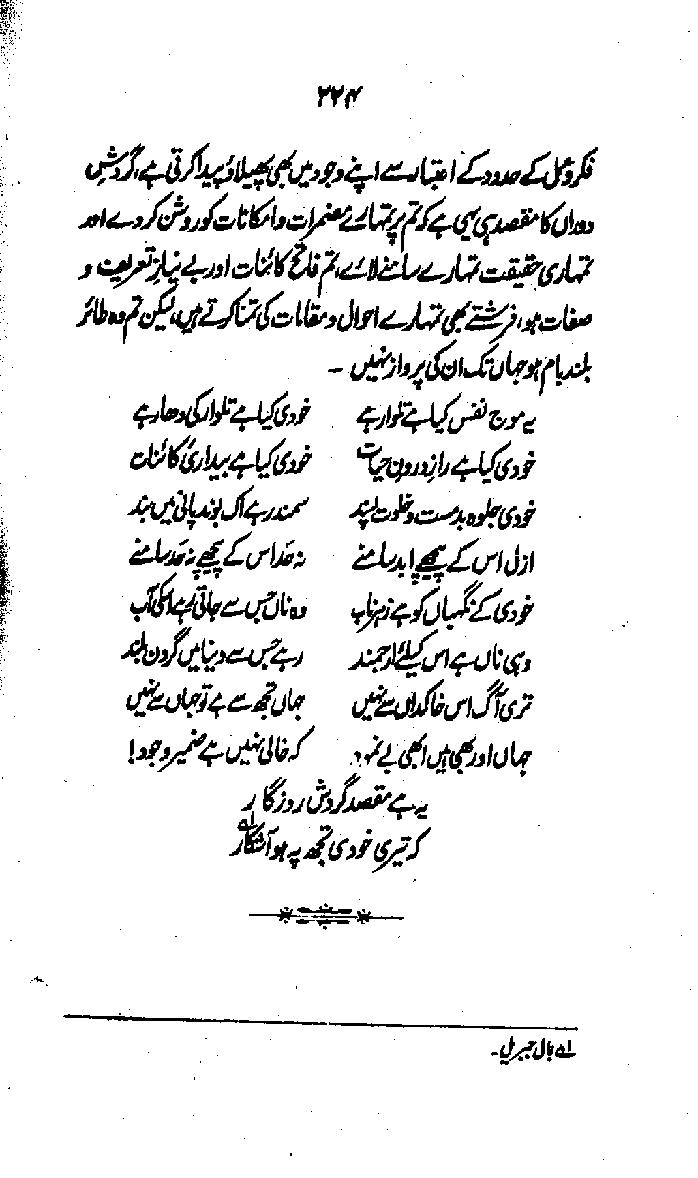 ۲۲۴
فکر و عمل کے حدود کے اعتبار سے اپنے وجود میں بھی پھیلاؤ پیدا کرتی ہے، گردشِ
دوراں کا مقصد ہی یہی ہے کہ تم پر تمہارے مضمرات و امکانات کو روشن کر دے اور
تمہاری حقیقت تمہارے سامنے لائے، تم فاتح کائنات اور بے نیاز تعریف و
صفات ہو، فرشتے بھی تمہارے احوال و مقامات کی تمنا کرتے ہیں، لیکن تم وہ طائر
بلند بام ہو جہاں تک ان کی پرواز نہیں ۔
یہ موج نفس کیا ہے تلوار ہے خودی کیا ہے تلوار کی دھار ہے
خودی کیا ہے راز درون حیات خودی کیا ہے بیداریٔ کائنات
خودی جلوہ بدمست و خلوت پسند سمندر ہے اک بوند پانی میں بند
ازل اس کے پیچھے ابد سامنے نہ حد اس کے پیچھے نہ حد سامنے
خودی کے نگہباں کو ہے زہر ناب وہ ناں جس سے جاتی رہے اسکی آب
وہی ناں ہے اس کیلئے ارجمند رہے جس سے دنیا میں گردن بلند
تری آگ اس خاکداں سے نہیں جہاں تجھ سے ہے تو جہاں سے نہیں
جہاں اور بھی ہیں ابھی بے نمود کہ خالی نہیں ہے ضمیر وجود!
یہ ہے مقصد گردش روزگار
کہ تیری خودی تجھ پہ ہو آشکار ؎۱
؎۱ بال جبریل۔